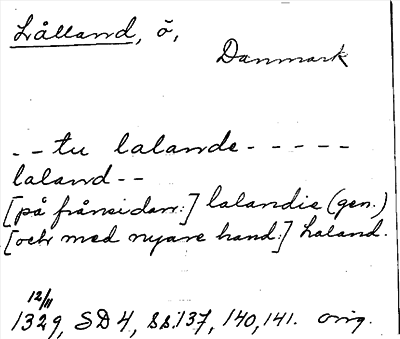 Lålland, ö,
Danmark
-- tu lalande -----
laland --
[på frånsidan:] lalandie (gen.)
[och med nyare hand:] Laland.
12/11
1329, SD 4, ss. 137, 140, 141. orig.